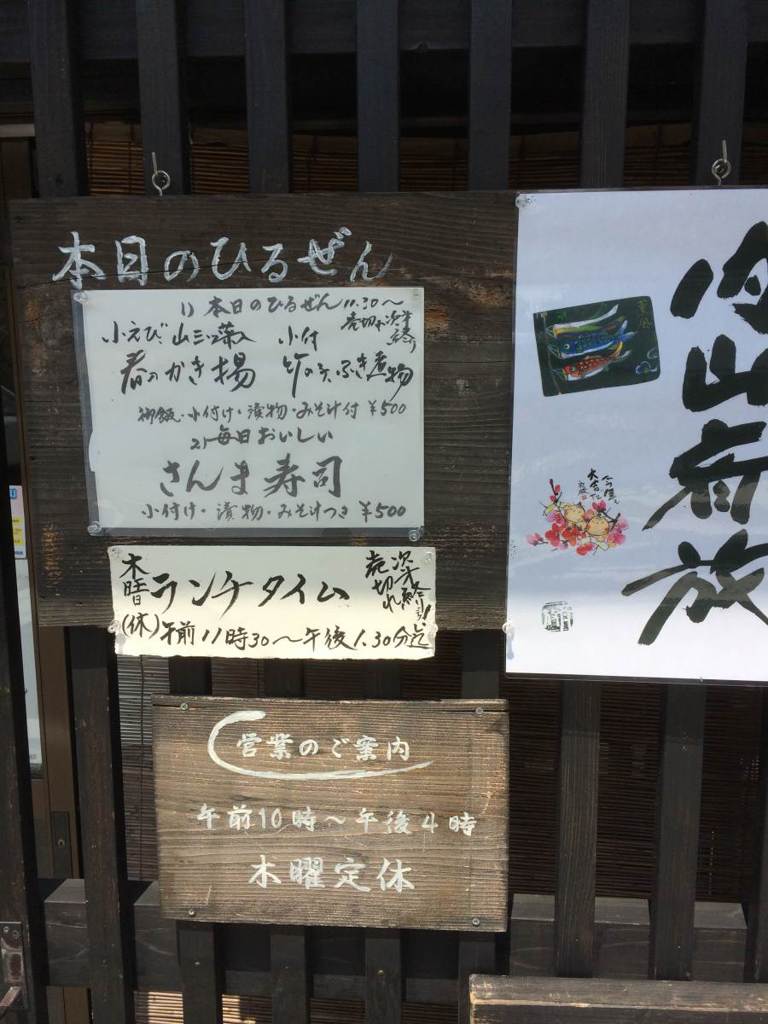 本日のひるぜん
1) 本日のひるぜん 11.30〜
売切れ次第
小えび 山三つ葉入 小付
春のかき揚 竹の子、ふき煮物
御飯・小付け・漬物・みそ汁付 ¥500
2) 毎日おいしい
さんま寿司
小付け・漬物・みそ汁つき ¥500
木曜日(休)
ランチタイム
売切れ次第終り!
午前11時30〜午後1.30分迄
営業のご案内
午前10時〜午後4時
木曜定休
内山府放